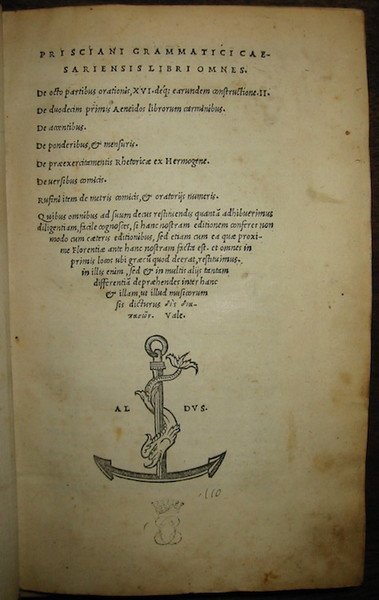 PRISCIANI GRAMMATICI CAE-
SARIENSIS LIBRI OMNES.
De octo partibus orationis, XVI. deq; earundem constructione. II.
De duodecim primis Aeneidos librorum carminibus.
De accentibus.
De ponderibus, & mensuris.
De praeexercitamentis Rhetoricae ex Hermogene.
De versibus comicis.
Rufini item de metris comicis, & oratorijs numeris.
Quibus omnibus ad suum decus restituendis quantā adhibuerimus
diligentiam, facile cognosces, si hanc nostram editionem conferes non
modo cum caeteris editionibus, sed etiam cum ea quae proxi-
me Florentiae ante hanc nostram facta est. et omnes in
primis locos ubi graecū quod deerat, restituimus.
in illis enim, sed & in multis alijs tantam
differentiā depraehendes inter hanc
& illam, ut illud musicorum
sis dicturus δὶς διὰ
πασῶν. Vale.
AL DVS.
110